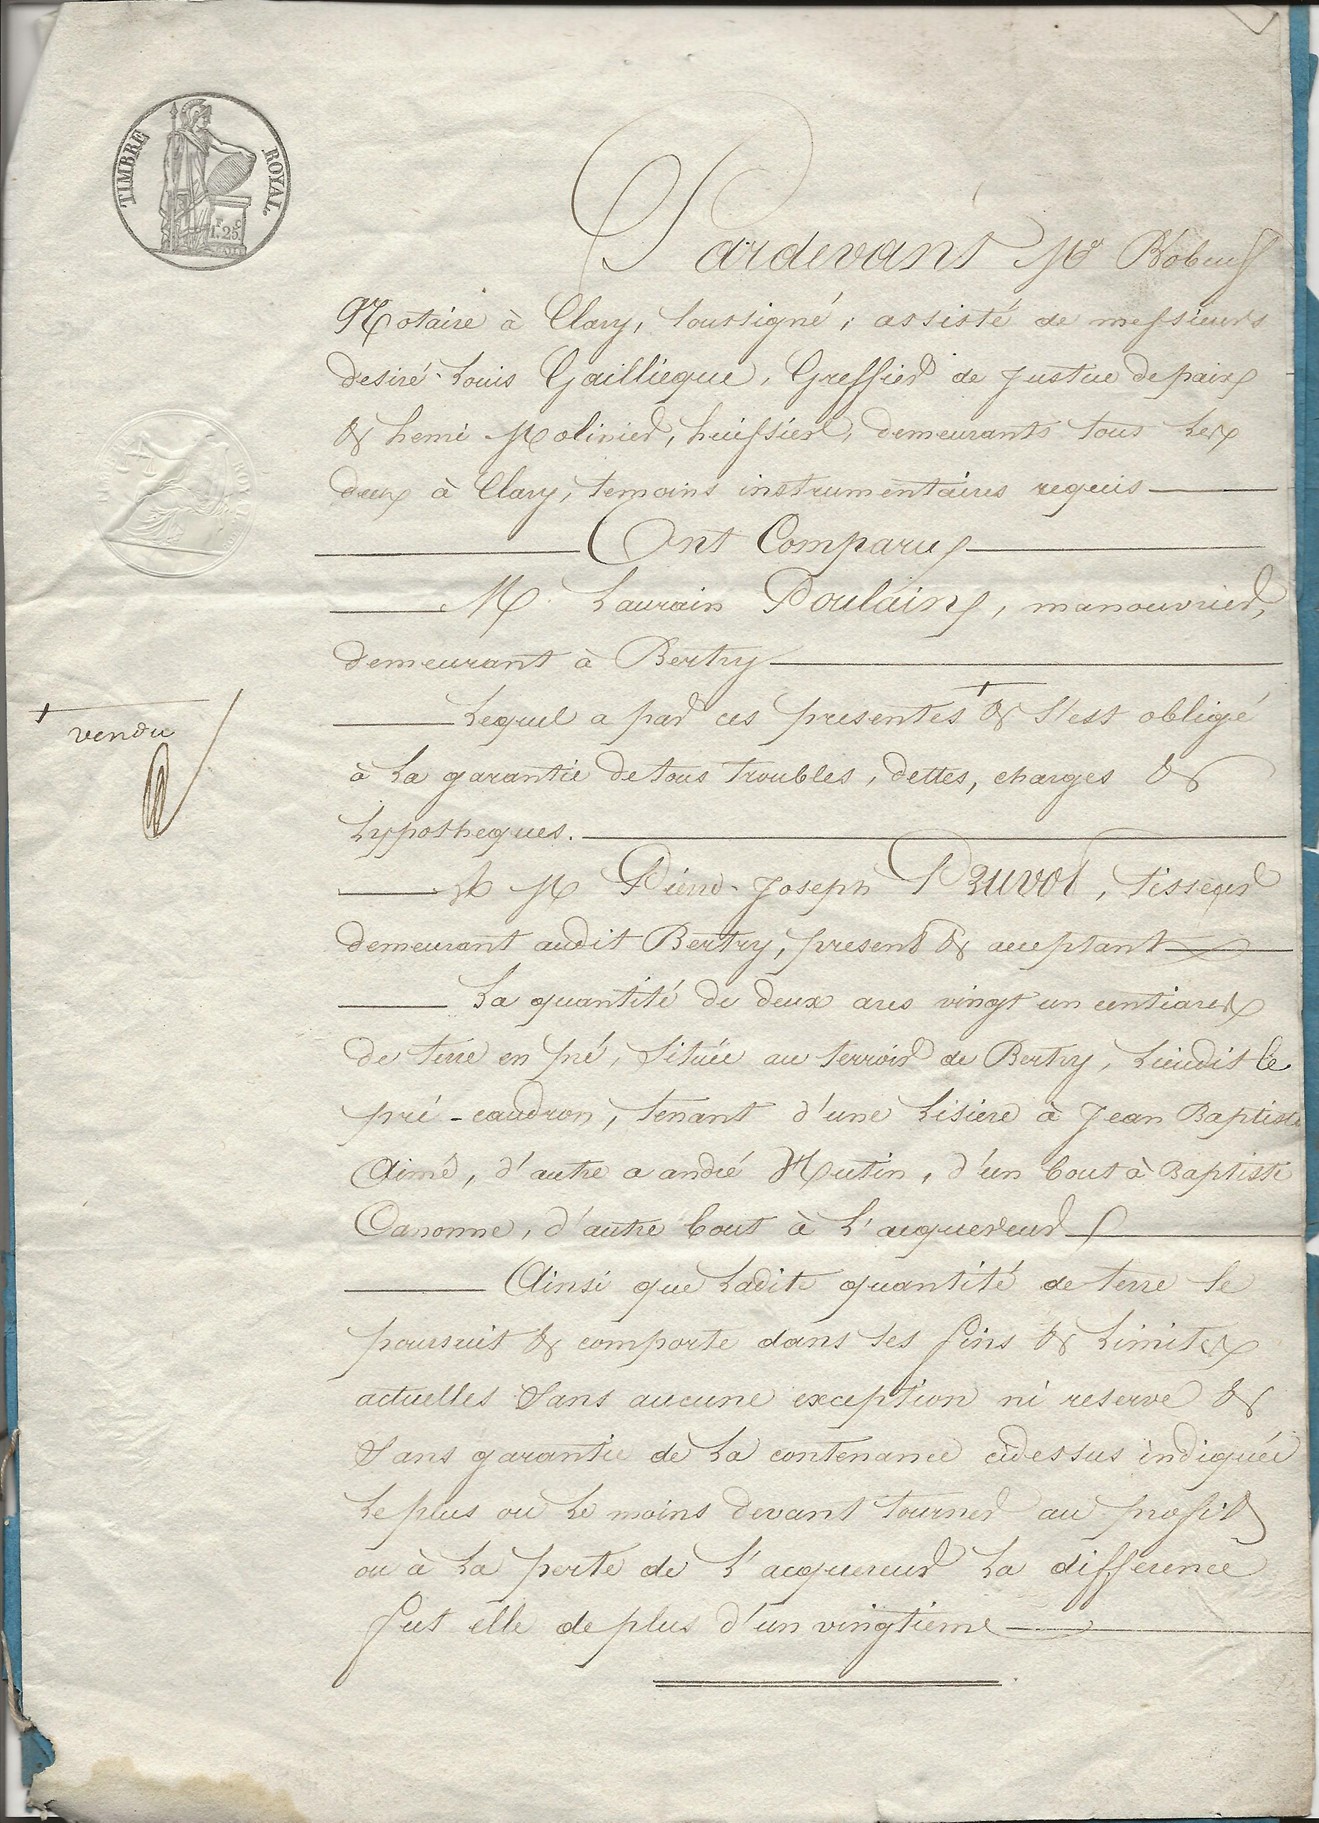 TIMBRE ROYAL
F. C
1.25
Pardevant Me Robeuf
Notaire à Clary, soussigné, assisté de messieurs
desiré Louis Gailliegue, Greffier de Justice depaix
& henri Molinier, huissier, demeurants tous Les
deux à Clary, temoins instrumentaires requis
Ont Comparu
M. Laurain Poulain, manouvrier,
demeurant à Bertry
Lequel a par ces presentes + & s'est obligé
+ vendu
à La garantie detous troubles, dettes, charges &
hypotheques.
A M Pierre-Joseph Pruvot, tisseur
demeurant audit Bertry, present & acceptant
La quantité de deux ares vingt un centiares
de terre en pré, située au terroir de Bertry, Lieudit le
pré-caudron, tenant d'une Lisiere à Jean Baptiste
Aimé, d'autre a andré Hutin, d'un bout à Baptiste
Canonne, d'autre bout à L'acquereur
Ainsi que Ladite quantité de terre se
poursuit & comporte dans ses fins & Limites
actuelles Sans aucune exception ni reserve &
Sans garantie de La contenance cidessus indiquée
Leplus ou Le moins devant tourner au profit
ou à La perte de L'acquereur La difference
fut elle deplus d'un vingtieme